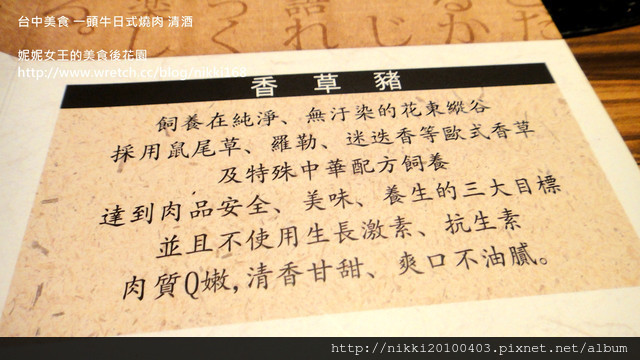 台中美食 一頭牛日式燒肉 清酒
妮妮女王的美食後花園
http://www.wretch.cc/blog/nikki168
香草豬
飼養在純淨、無汙染的花東縱谷
採用鼠尾草、羅勒、迷迭香等歐式香草
及特殊中華配方飼養
達到肉品安全、美味、養生的三大目標
並且不使用生長激素、抗生素
肉質Q嫩,清香甘甜、爽口不油膩。
http://nikki20100403.pixnet.net/album